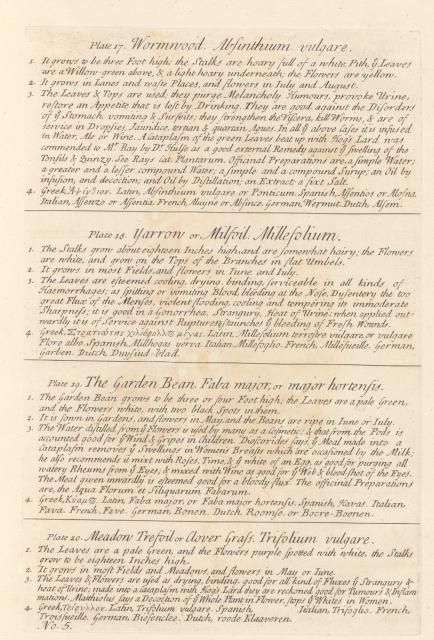 Plate 17. Wormwood. Absinthium vulgare.
1. It grows to be three Foot high; the Stalks are hoary full of a white Pith, ẙ Leaves
are a Willow-green above, & a light hoary underneath; the Flowers are yellow.
2. It grows in Lanes and waste Places, and flowers in July and August.
3. The Leaves & Tops are used, they purge Melancholy Humours, provoke Urine,
restore an Appetite that is lost by Drinking. They are good against the Disorders
of ẙ Stomach vomiting & Surfeits; they strengthen the Viscera, kill Worms, & are of
service in Dropsies, Jaundice, tertian & quartan Agues. In all ẙ above cases it is infused
in Water, Ale or Wine. A Cataplasm of the green Leaves beat up with Hog's Lard was
commended to Mr. Ray by Dr. Hulse as a good external Remedy against ẙ swelling of the
Tonsils & Quinzy. See Rays Cat. Plantarum. Officinal Preparations are, a simple Water;
a greater and a lesser compound Water; a simple and a compound Syrup; an Oil by
infusion, and decoction; and Oil by Distillation; an Extract; a fixt Salt.
4. Greek, Ἀψίνθιον. Latin, Absinthium vulgare or Ponticum. Spanish, Assentios or Alosna.
Italian, Assenzo or Assentia. French, Aluyne or Absince. German, Wermut. Dutch, Alsem.
Plate 18. Yarrow or Milfoil. Millefolium.
1. The Stalks grow about eighteen Inches high, and are somewhat hairy; the Flowers
are white, and grow on the Tops of the Branches in flat Umbels.
2. It grows in most Fields, and flowers in June and July.
3. The Leaves are esteemed cooling, drying, binding, serviceable in all kinds of
Hæmorrhages, as spitting or vomiting Blood, bleeding at the Nose, Dysentery the too
great Flux of the Menses, violent flooding; cooling and tempering its immoderate
Sharpness; it is good in a Gonorrhea, Strangury, Heat of Urine; when applied out-
wardly it is of Service against Ruptures, staunches ẙ bleeding of Fresh Wounds.
4. Greek, Latin, Millefolium terrestre vulgare, or vulgare
Flore albo. Spanish, Milhojas yerva. Italian, Millefoglio. French, Millefueille. German,
Garben. Dutch, Duysiud-blad.
Plate 19. The Garden Bean. Faba major, or major hortensis.
1. The Garden Bean grows to be three or four Foot high; the Leaves are a pale Green,
and the Flowers white, with two black Spots in them.
2. It is sown in Gardens, and flowers in May, and the Beans are ripe in June or July.
3. The Water distilled from ẙ Flowers is used by many as a cosmetic; & that from the Pods is
accounted good for ẙ Wind & Gripes in Children. Dioscorides says, ẙ Meal made into a
Cataplasm removes ẙ Swellings in Womens Breasts which are occasioned by the Milk;
he also recommends it mixt with Roses, Time, & ẙ white of an Egg, as good for purging all
watery Rheums from ẙ Eyes; & mixed with Wine as good for ẙ Web & blood-shot of the Eyes.
The Meal given inwardly is esteemed good for a bloody flux. The officinal Preparations
are, the Aqua Florum et Siliquarum Fabarum.
4. Greek, Κύαμος. Latin, Faba major; or Faba major hortensis. Spanish, Havas. Italian
Fava. French, Fave. German, Bonen. Dutch, Roomse, or Bocre-Boonen.
Plate 20. Meadow Trefoil or Clover Grass. Trifolium vulgare.
1. The Leaves are a pale Green, and the Flowers purple spotted with white, the Stalks
grow to be eighteen Inches high.
2. It grows in most Fields and Meadows, and flowers in May or June.
3. The Leaves & Flowers are used as drying, binding, good for all kind of Fluxes ẙ Strangury &
heat of Urine; made into a Cataplasm with Hog's Lard they are reckoned good for Tumours & Inflam
mations. Matthiolus says a Decoction of ẙ Whole Plant in Flower, stops ẙ Whites in Women.
4. Greek, Τρίφυλλον. Latin, Trifolium vulgare. Spanish, Italian, Trifoglio. French,
Troisfueille. German, Dutch, roode Klaaveren.
No. 5.